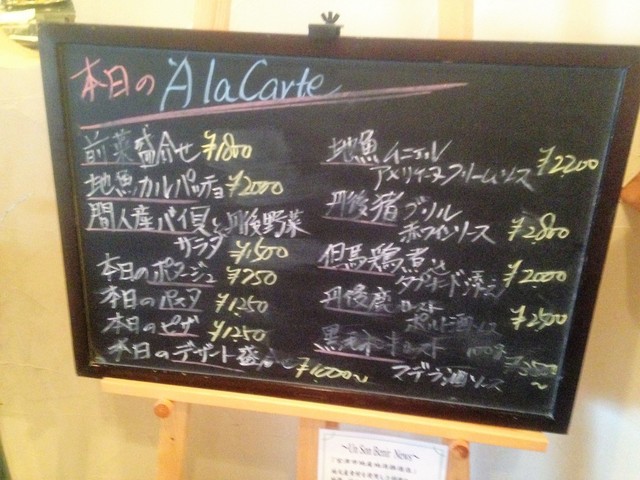 本日の A la Carte
前菜盛合せ ¥1800
地魚カルパッチョ ¥2000
間人産バイ貝と丹後野菜
サラダ ¥1500
本日のポタージュ ¥750
本日のパスタ ¥1250
本日のピザ ¥1250
本日のデザート盛合せ ¥1000〜
地魚
アメリケーヌクリームソース ¥2200
丹後猪グリル
赤ワインソース ¥2800
但馬鶏煮込
¥2000
丹後鹿ロースト
ソース ¥2500
黒毛和牛 100g
マデラ酒ソース ¥3500〜
~Un Sen Bene News~